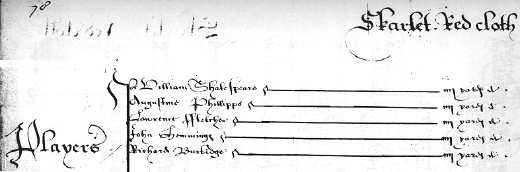 78
Skarlet Red cloth
William Shakespeare iiij yardes di.
Augustine Phillipps iiij yardes di.
Laurence Fletcher iiij yardes di.
John Hemminges iiij yardes di.
Richard Burbidge iiij yardes di.
Players